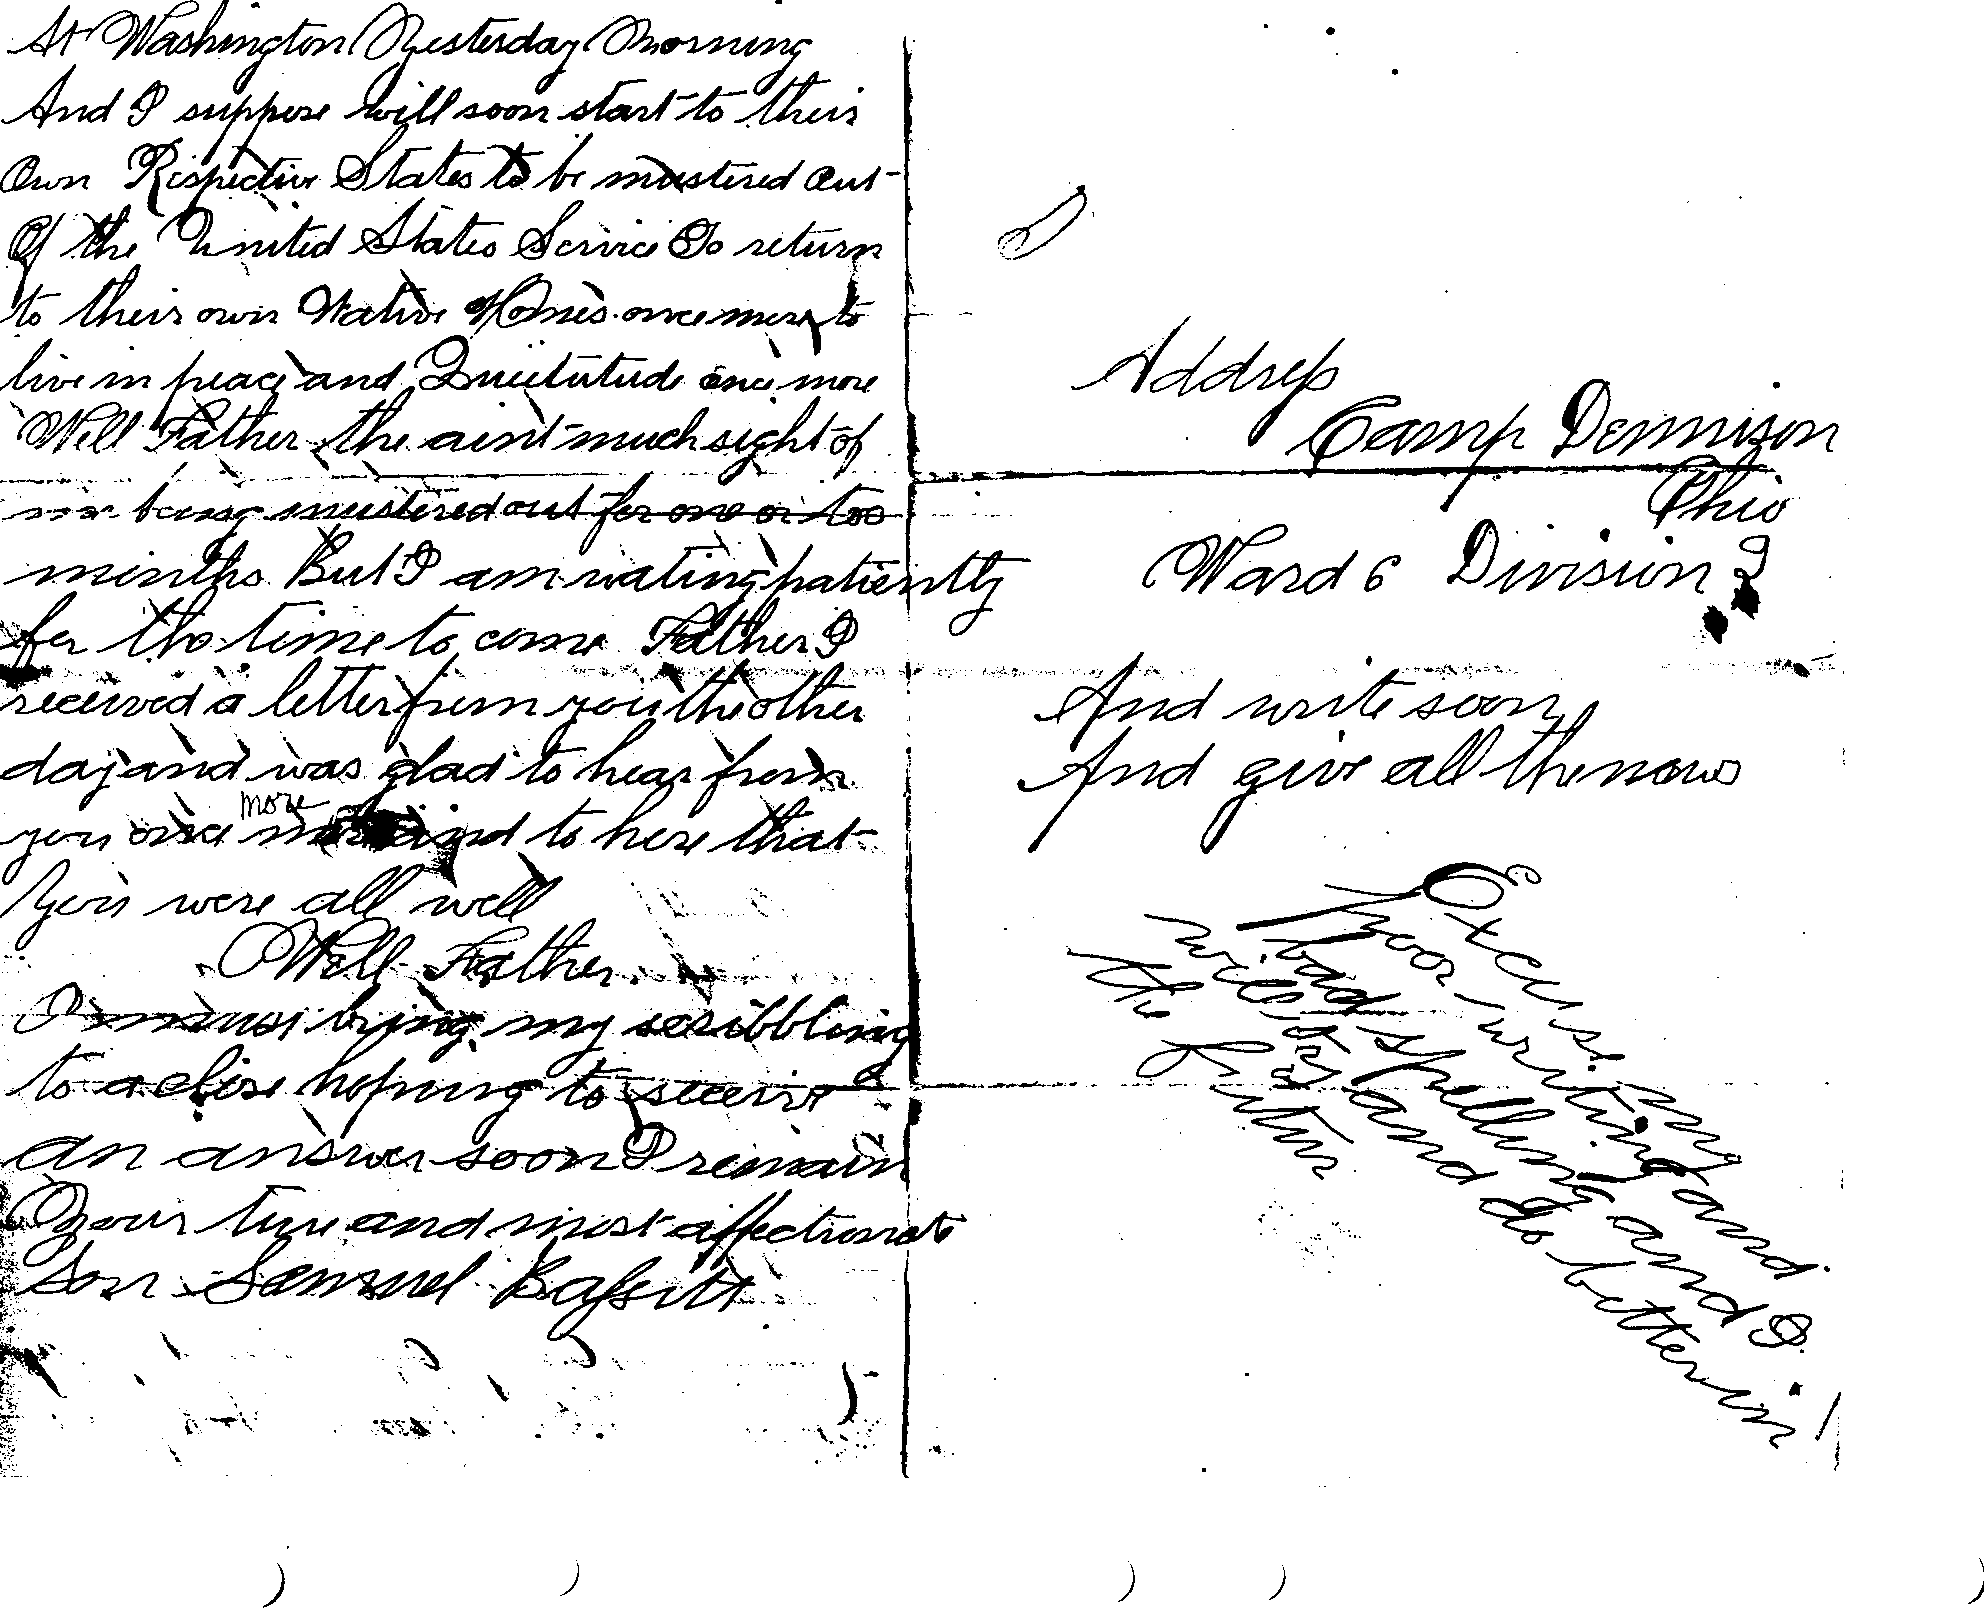 At Washington Yesterday Morning
And I suppose will soon start to their
Own Respective States to be mustered out
Of the United States Service To return
to their own Native Homes once more to
live in peace and Quietutude once more
Well Father the aint much sight of
me being mustered out for one or too
months But I am wating patiently
for the time to come Father I
received a letter from you the other
day and was glad to hear from
more
you once and to here that
You were all well
Well Father
I must bring my scribbling
to a close hoping to receive
an answer soon I remain
Your true and most affectionate
Son Samuel Bassitt
Address
Camp Dennison
Ohio
Ward 6 Division 2
And write soon
And give all the news
Excuse my
poor writing and
bad spelling and I
will try and do better in
the futur